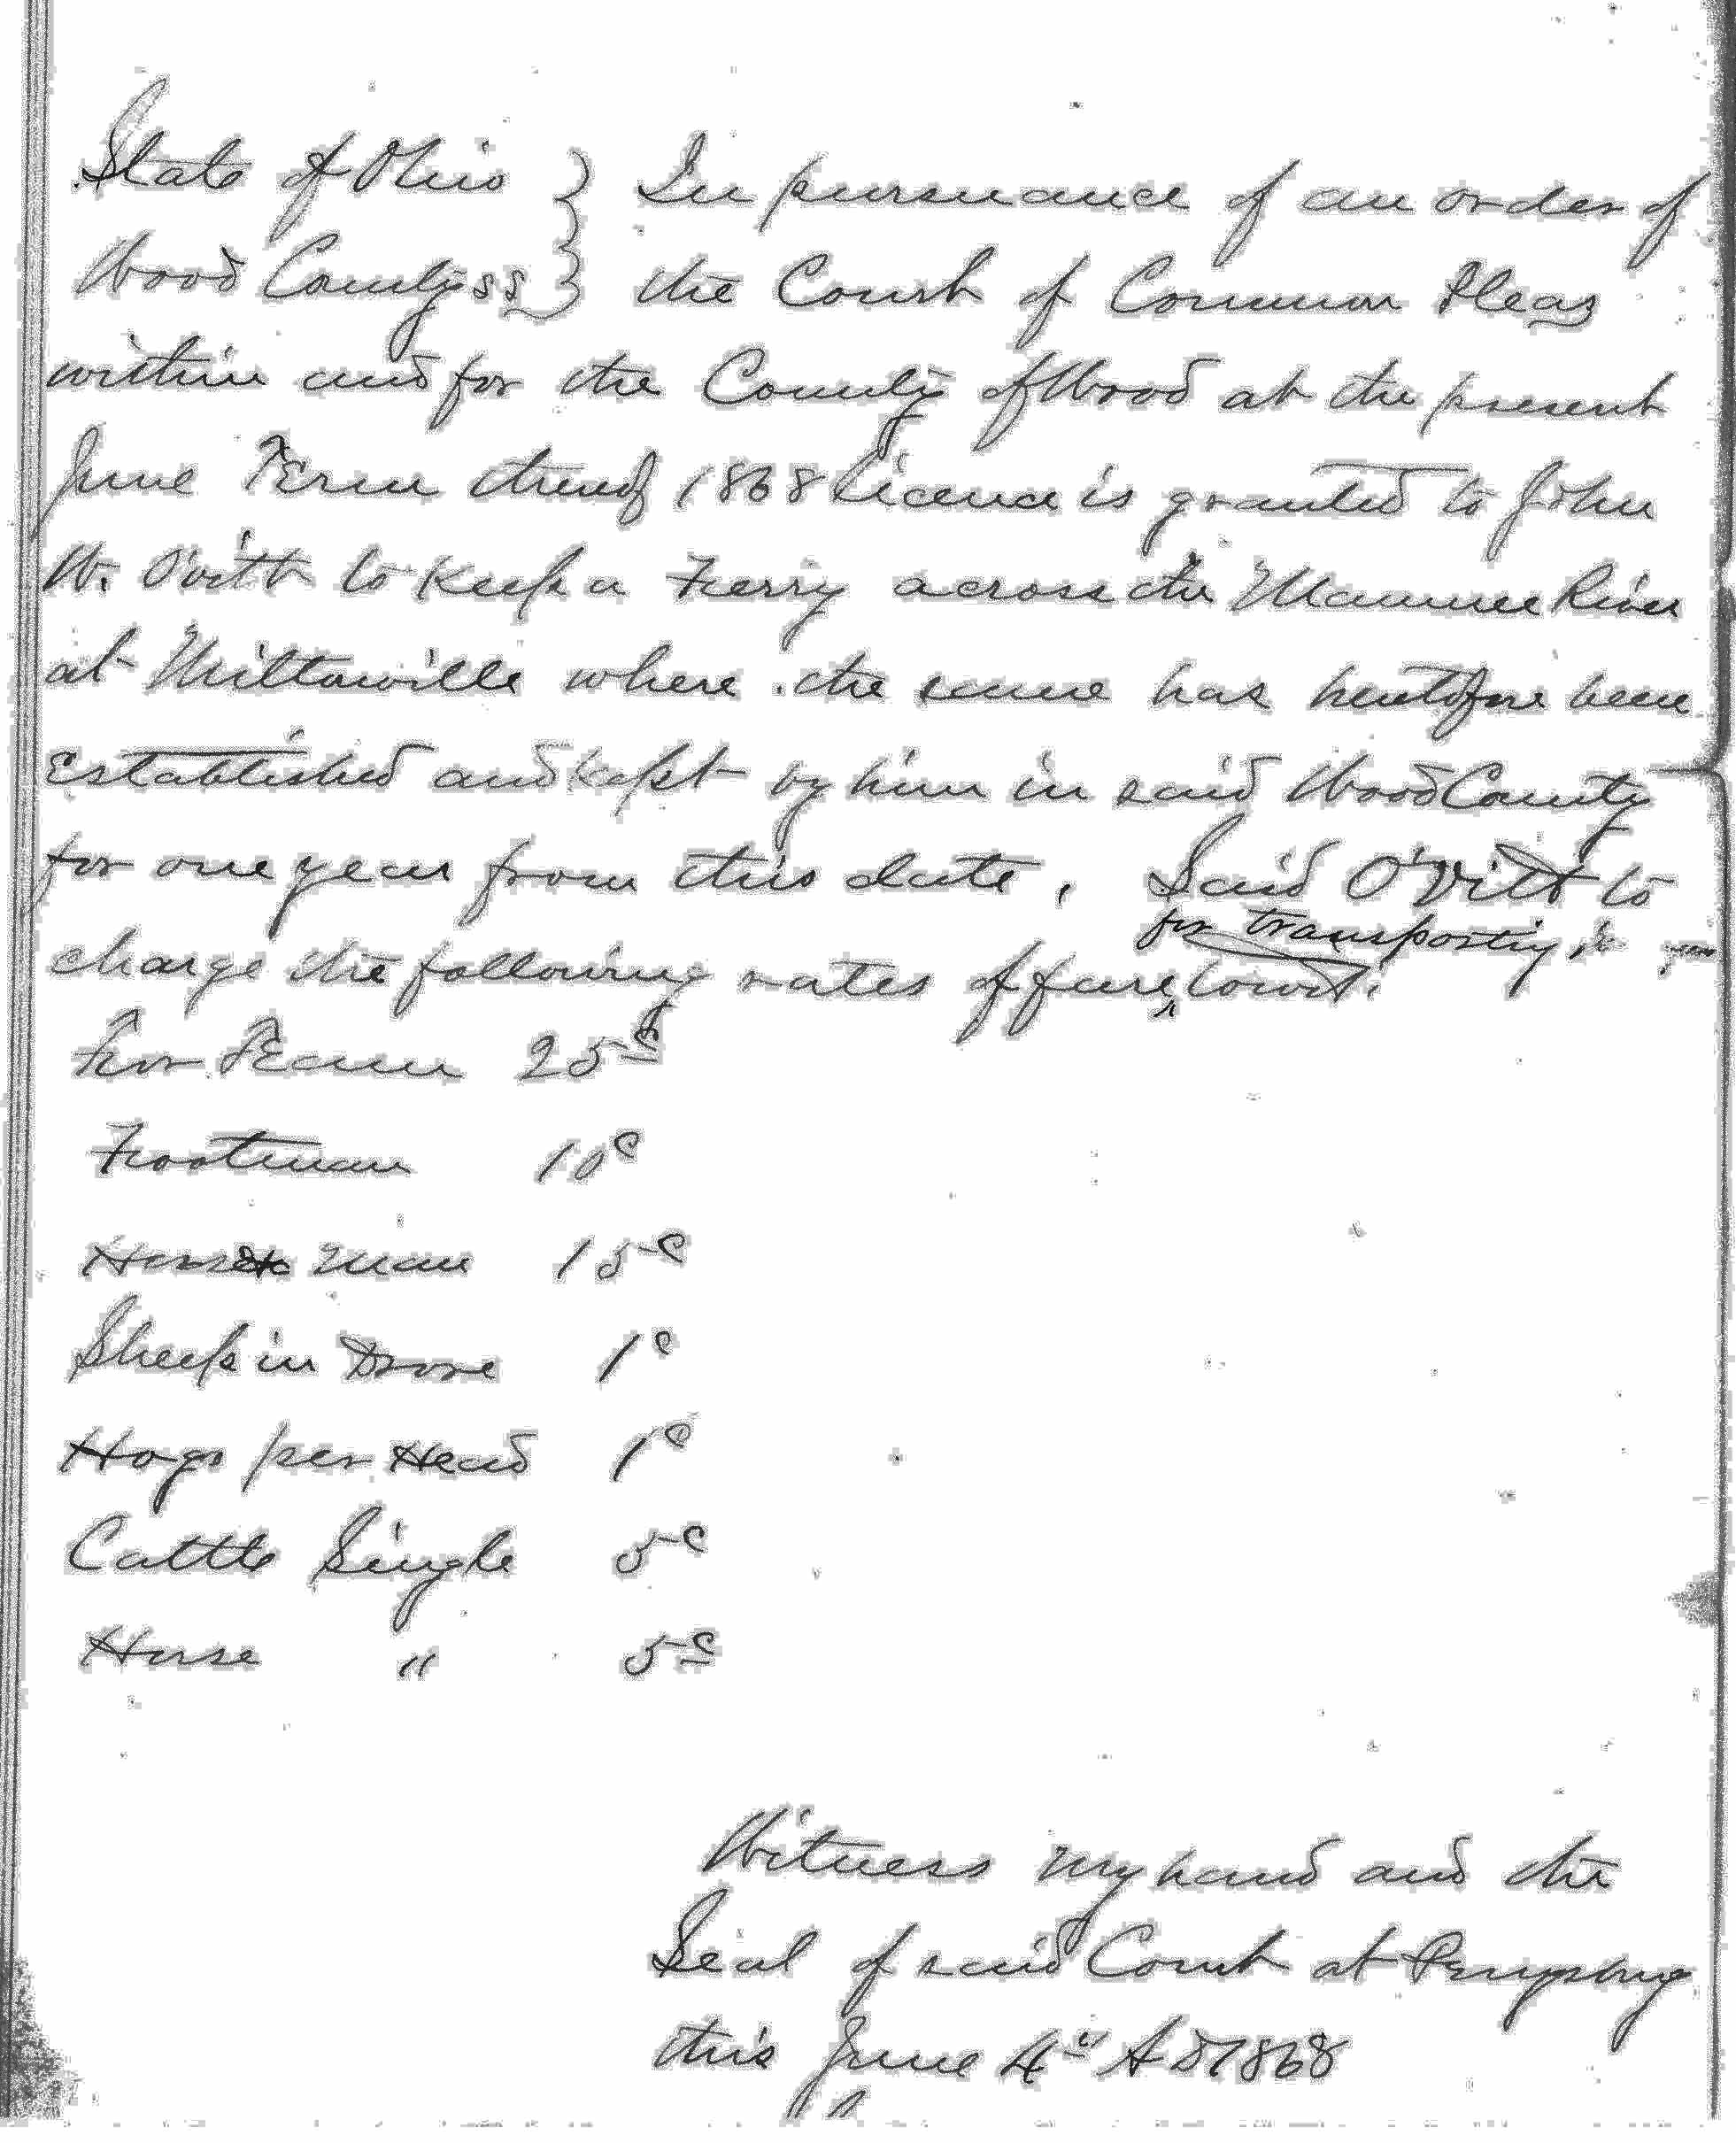 State of Ohio } In pursuance of an order of
Wood County ss } the Court of Common Pleas
within and for the County of Wood at the present
June Term thereof 1868 Licence is granted to John
W. O'vitt to Keep a Ferry across the Maumee River
at Miltonville where the same has heretofore been
Established and kept by him in said Wood County
for one year from this date, Said O'Vitt to
for transporting
charge the following rates of fare towit:
For Team 25c
Footman 10c
Horse Man 15c
Sheep in Drove 1c
Hogs per Head 1c
Cattle Single 5c
Horse " 5c
Witness my hand and the
Seal of said Court at Perrysburg
this June 4th AD 1868